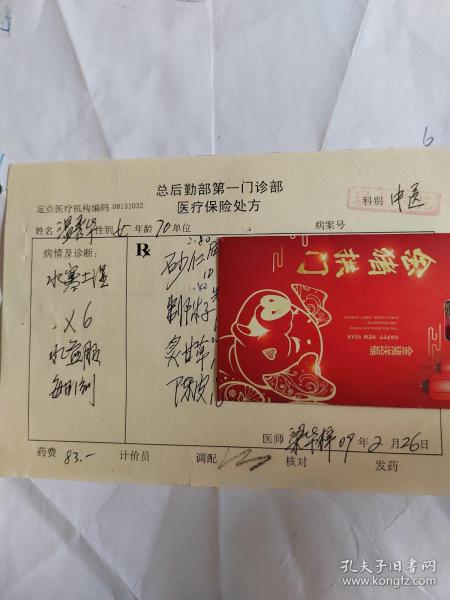 总后勤部第一门诊部
定点医疗机构编码 08131032
医疗保险处方
科别 中医
姓名 性别 女 年龄 70 单位 病案号
病情及诊断:
水寒土湿
X6
水煎服
每日1剂
R
砂仁
炙甘草
陈皮
金猪拱门
金猪送福
HAPPY NEW YEAR
医师 09 年 2 月 26 日
药费 83.- 计价员 调配 核对 发药
6
孔夫子旧书网
www.kongfz.com